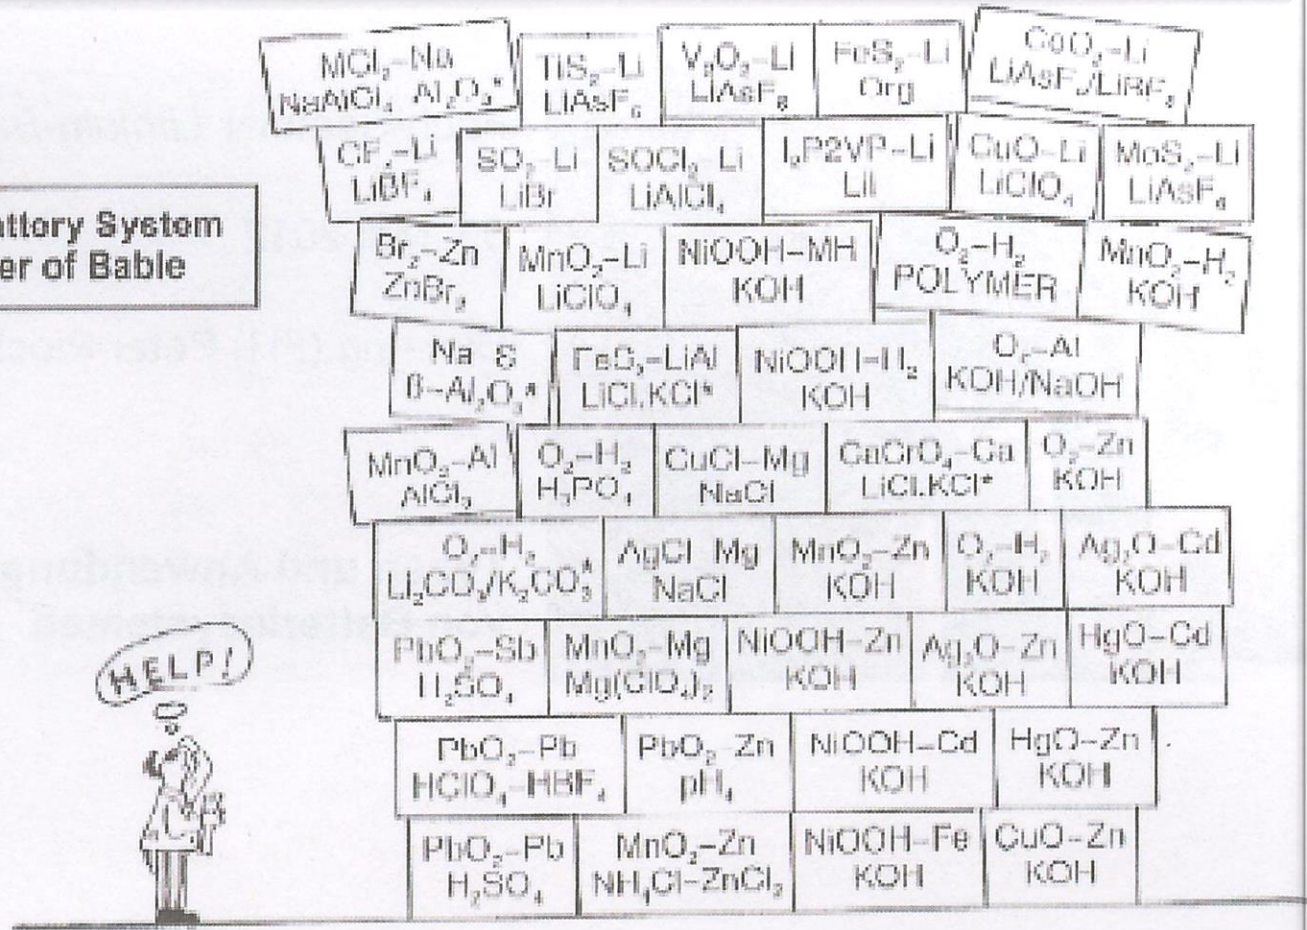 MCl₂–Na
NaAlCl₄ Al₂O₃*
TiS₂–Li
LiAsF₆
V₂O₂–Li
LiAsF₆
FeS₂–Li
Org
CoO₂–Li
LiAsF₆/LiBF₄
CF₂–Li
LiBF₄
SO₂–Li
LiBr
SOCl₂–Li
LiAlCl₄
I₂P2VP–Li
LiI
CuO–Li
LiClO₄
MoS₂–Li
LiAsF₆
System
er of Bable
Br₂–Zn
ZnBr₂
MnO₂–Li
LiClO₄
NiOOH–MH
KOH
O₂–H₂
POLYMER
MnO₂–H₂
KOH
Na S
β–Al₂O₃*
FeS₂–LiAl
LiCl.KCl*
NiOOH–H₂
KOH
O₂–Al
KOH/NaOH
MnO₂–Al
AlCl₃
O₂–H₂
H₃PO₄
CuCl–Mg
NaCl
CaCrO₄–Ca
LiCl.KCl*
O₂–Zn
KOH
O₂–H₂
Li₂CO₃/K₂CO₃*
AgCl Mg
NaCl
MnO₂–Zn
KOH
O₂–H₂
KOH
Ag₂O–Cd
KOH
HELP!
PbO₂–Sb
H₂SO₄
MnO₂–Mg
Mg(ClO₄)₂
NiOOH–Zn
KOH
Ag₂O–Zn
KOH
HgO–Cd
KOH
PbO₂–Pb
HClO₄–HBF₄
PbO₂–Zn
pH₄
NiOOH–Cd
KOH
HgO–Zn
KOH
PbO₂–Pb
H₂SO₄
MnO₂–Zn
NH₄Cl–ZnCl₂
NiOOH–Fe
KOH
CuO–Zn
KOH